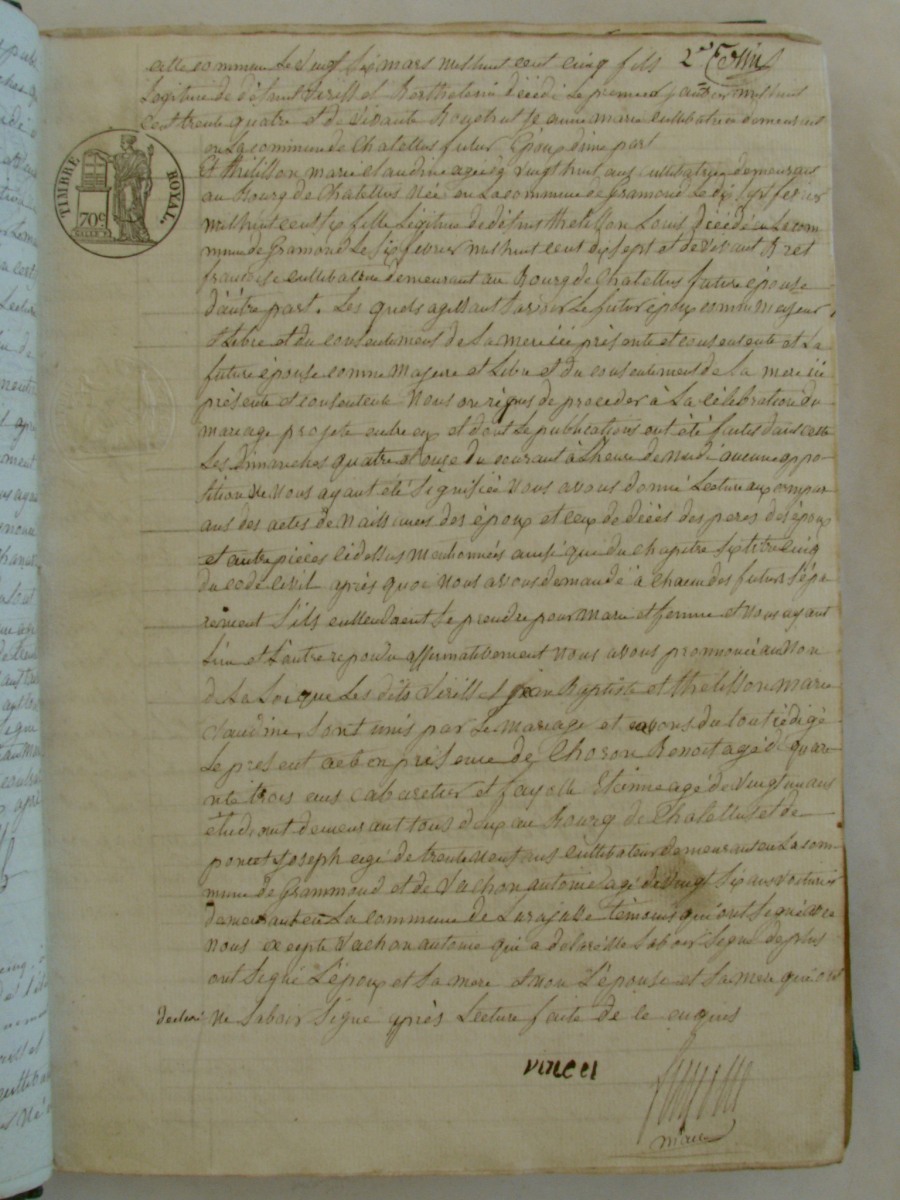 cette commune Le vingt six mars mil huit cent cinq fils 2e
Legitime de défunt et Berthelemie décédé Le premier janvier mil huit
cent trente quatre et de vivante anne marie cultivatrice demeurant
en La commune de Chatellus futur Epoux dune part
TIMBRE ROYAL.
70c
Et thélisson marie claudine agée de vingt huit ans cultivatrice demeurant
au Bourg de Chatellus Née en La commune de Gramond Le fevrier
mil huit cent six fille Légitime de défunt thelisson Louis décédé en Le com
mune de Gramond Le six fevrier mil huit cent dix sept et de vivant
francoise cultivatrice demeurant au Bourg de Chatellus future épouse
d'autre part. Les quels agissant savoir Le futur époux comme majeur
et Libre et du consentement de La mere ici présente et consentente et La
future épouse comme Majeure et Libre et du consentement de La mere ici
présente et consentente Nous on réquis de proceder à La célébration du
mariage projeté entre eux et dont Le publications ont été faites dans cette
Les dimanches quatre et onze du courant à Lheure de midi aucune oppo
sition Ne Nous ayant été signifiée Nous avons donné Lecture aux compar
ans des actes de Naissances des époux et ceux de décès des peres des époux
et autre pièces cidessus mentionnées ainsi que du chapitre six titre cinq
du code civil après quoi Nous avons demandé à chacun des futurs sépa
rement s'ils entendaent se prendre pour Mari et femme et Nous ayant
L'un et Lautre repondu affirmativement Nous avons prononcé au Nom
de La Loi que Les dits Jean Baptiste et thelisson Marie
Claudine sont unis par Le Mariage et avons du tout rédigé
Le present acte en présence de Choron Benoit agé de quara
nte trois ans cabaretier et fayolle Etienne agé de vingt un ans
étudiant demeurant tous deux au Bourg de Chatellus et de
poncet Joseph agé de trente Neuf ans cultivateur demeurans en La com
mune de Grammond et de Vachon antoine agé de vingt six ans voiturier
demeurant en La commune de Larajasse témoins qui ont signé avec
Nous excepte Vachon antoine qui a déclaré ne savoir signé de plus
ont signé L'époux et sa mere et non L'épouse et sa mere qui ont
declaré Ne savoir signé après Lecture faite de le
vincen
maire